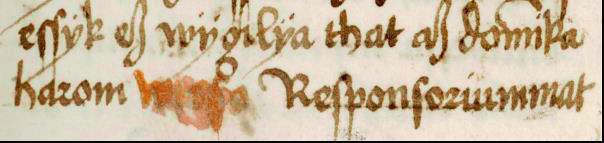 essyk eß wÿgilÿa that aß domīka
harom Responsoriummat